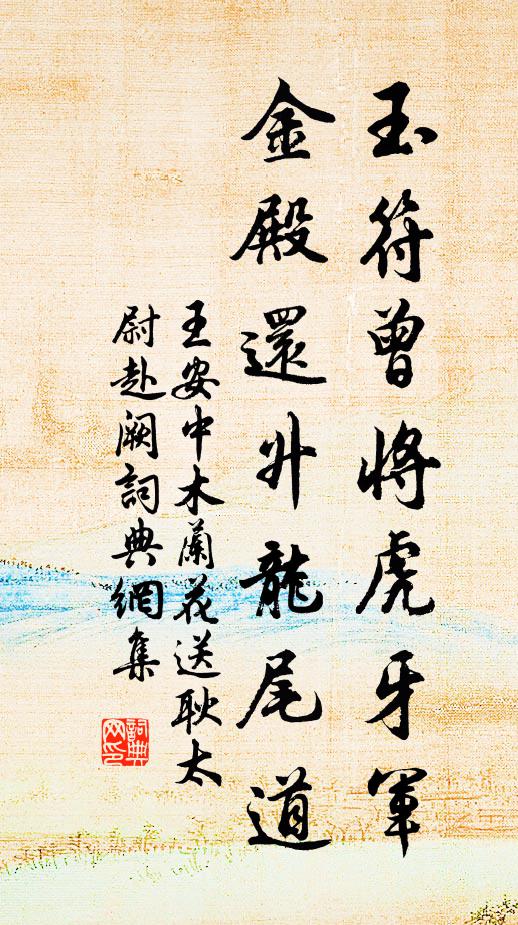 玉符曾將虎牙軍
金殿還升龍尾道
王安中木蘭花送耿太
尉赴闕詞典網集
詞典網印